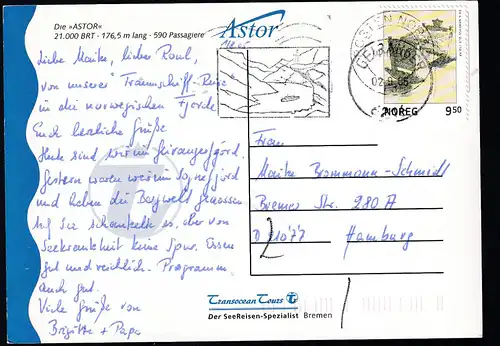 Die »ASTOR«
21.000 BRT · 176,5 m lang · 590 Passagiere
Astor
NOREG
9⁵⁰
Liebe Maike, lieber Paul,
von unserer Traumschiff-Reise
in die norwegischen Fjorde
Euch herzliche Grüße
Heute sind wir im Geirangerfjord.
Gestern waren wir im Sognefjord
und haben die Bergwelt genossen
Auf See schaukelte es, aber von
Seekrankheit keine Spur. Essen
gut und reichlich. Programm
auch gut.
Viele Grüße von
Brigitte + Papa
Frau
Maike Brammann-Schmidt
Bremer Str. 280 A
D 21077 Hamburg
Transocean Tours
Der SeeReisen-Spezialist Bremen